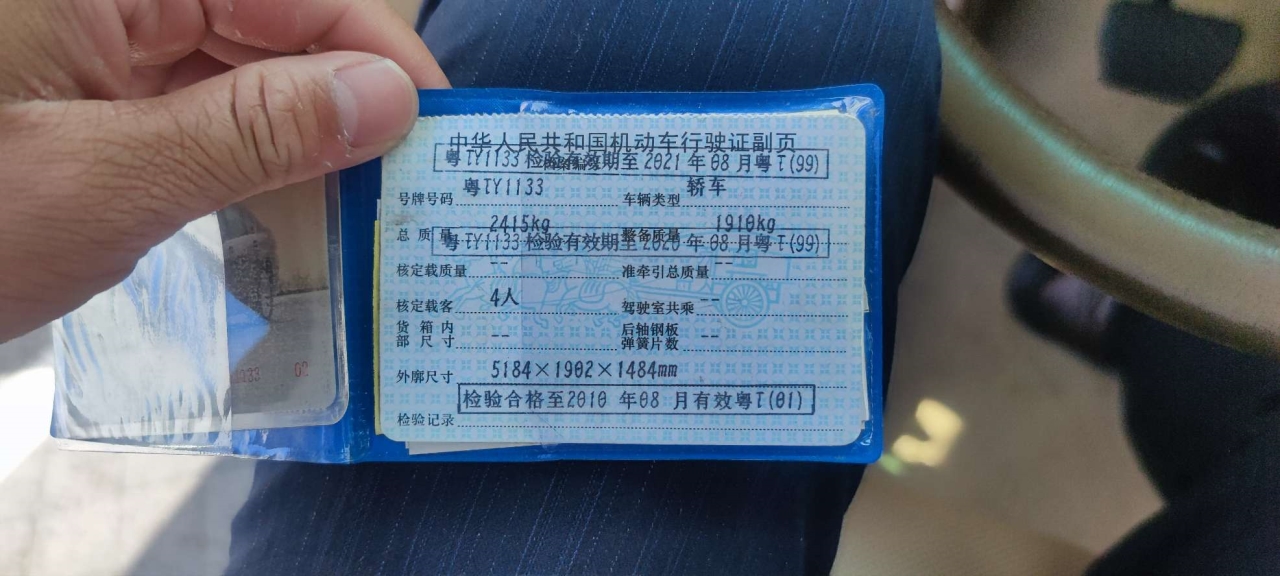 中华人民共和国机动车行驶证副页
粤TY1133 检验有效期至 2021 年 08 月粤T(99)
号牌号码 粤TY1133 车辆类型 轿车
总质量 2415kg 整备质量 1910kg
粤TY1133 检验有效期至 2020 年 08 月粤T(99)
核定载质量 -- 准牵引总质量 --
核定载客 4人 驾驶室共乘 --
货箱内部尺寸 -- 后轴钢板弹簧片数 --
外廓尺寸 5184×1902×1484mm
检验合格至2010 年08 月有效粤T(01)
检验记录